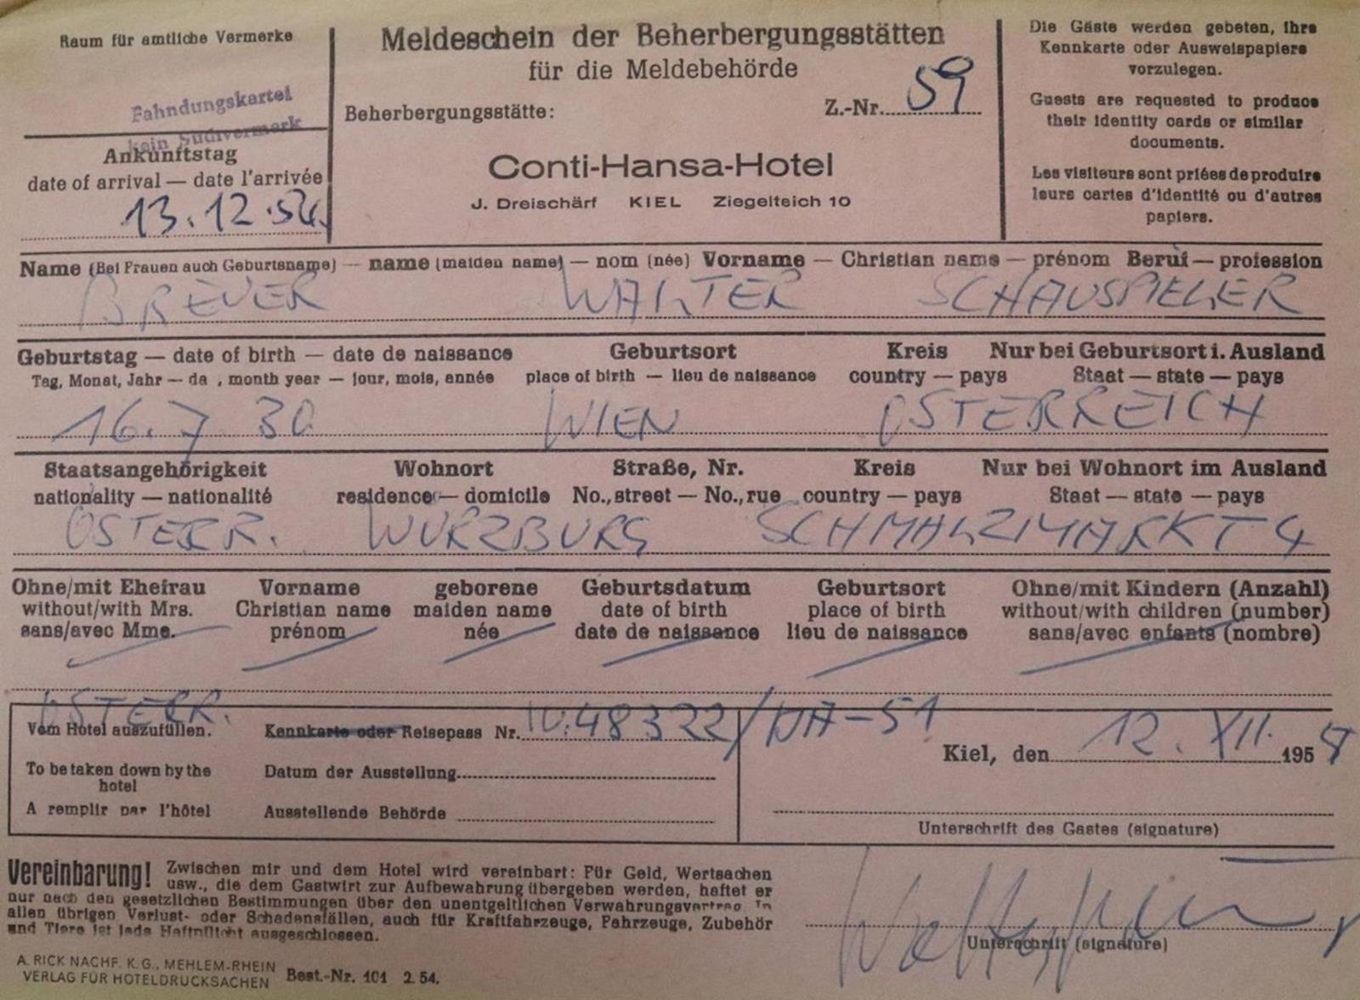 Raum für amtliche Vermerke
Fahndungskartei
kein Suchvermerk
Ankunftstag
date of arrival — date l'arrivée
13.12.54.
Meldeschein der Beherbergungsstätten
für die Meldebehörde
Beherbergungsstätte:
Z.-Nr. 59
Conti-Hansa-Hotel
J. Dreischärf KIEL Ziegelteich 10
Die Gäste werden gebeten, ihre
Kennkarte oder Ausweispapiere
vorzulegen.
Guests are requested to produce
their identity cards or similar
documents.
Les visiteurs sont priées de produire
leurs cartes d'identité ou d'autres
papiers.
Name (Bei Frauen auch Geburtsname) — name (maiden name) — nom (née) Vorname — Christian name — prénom Beruf — profession
BREUER WALTER SCHAUSPIELER
Geburtstag — date of birth — date de naissance Geburtsort Kreis Nur bei Geburtsort i. Ausland
Tag, Monat, Jahr — da , month year — jour, mois, année place of birth — lieu de naissance country — pays Staat — state — pays
16. 7 30 WIEN ÖSTERREICH
Staatsangehörigkeit Wohnort Straße, Nr. Kreis Nur bei Wohnort im Ausland
nationality — nationalité residence — domicile No., street — No., rue country — pays Staat — state — pays
ÖSTERR. WÜRZBURG SCHMALZMARKT 4
Ohne/mit Ehefrau Vorname geborene Geburtsdatum Geburtsort Ohne/mit Kindern (Anzahl)
without/with Mrs. Christian name maiden name date of birth place of birth without/with children (number)
sans/avec Mme. prénom née date de naissance lieu de naissance sans/avec enfants (nombre)
ÖSTERR.
Vom Hotel auszufüllen. Kennkarte oder Reisepass Nr. 48322
To be taken down by the
hotel
Datum der Ausstellung
A remplir par l'hôtel Ausstellende Behörde
Kiel, den 12. XII. 195
Unterschrift des Gastes (signature)
Vereinbarung! Zwischen mir und dem Hotel wird vereinbart: Für Geld, Wertsachen
usw., die dem Gastwirt zur Aufbewahrung übergeben werden, haftet er
nur nach den gesetzlichen Bestimmungen über den unentgeltlichen Verwahrungsvertrag. In
allen übrigen Verlust- oder Schadensfällen, auch für Kraftfahrzeuge, Fahrzeuge, Zubehör
und Tiere ist jede Haftpflicht ausgeschlossen.
Unterschrift (signature)
A. RICK NACHF. K. G., MEHLEM-RHEIN
VERLAG FÜR HOTELDRUCKSACHEN Best.-Nr. 101 2. 54.